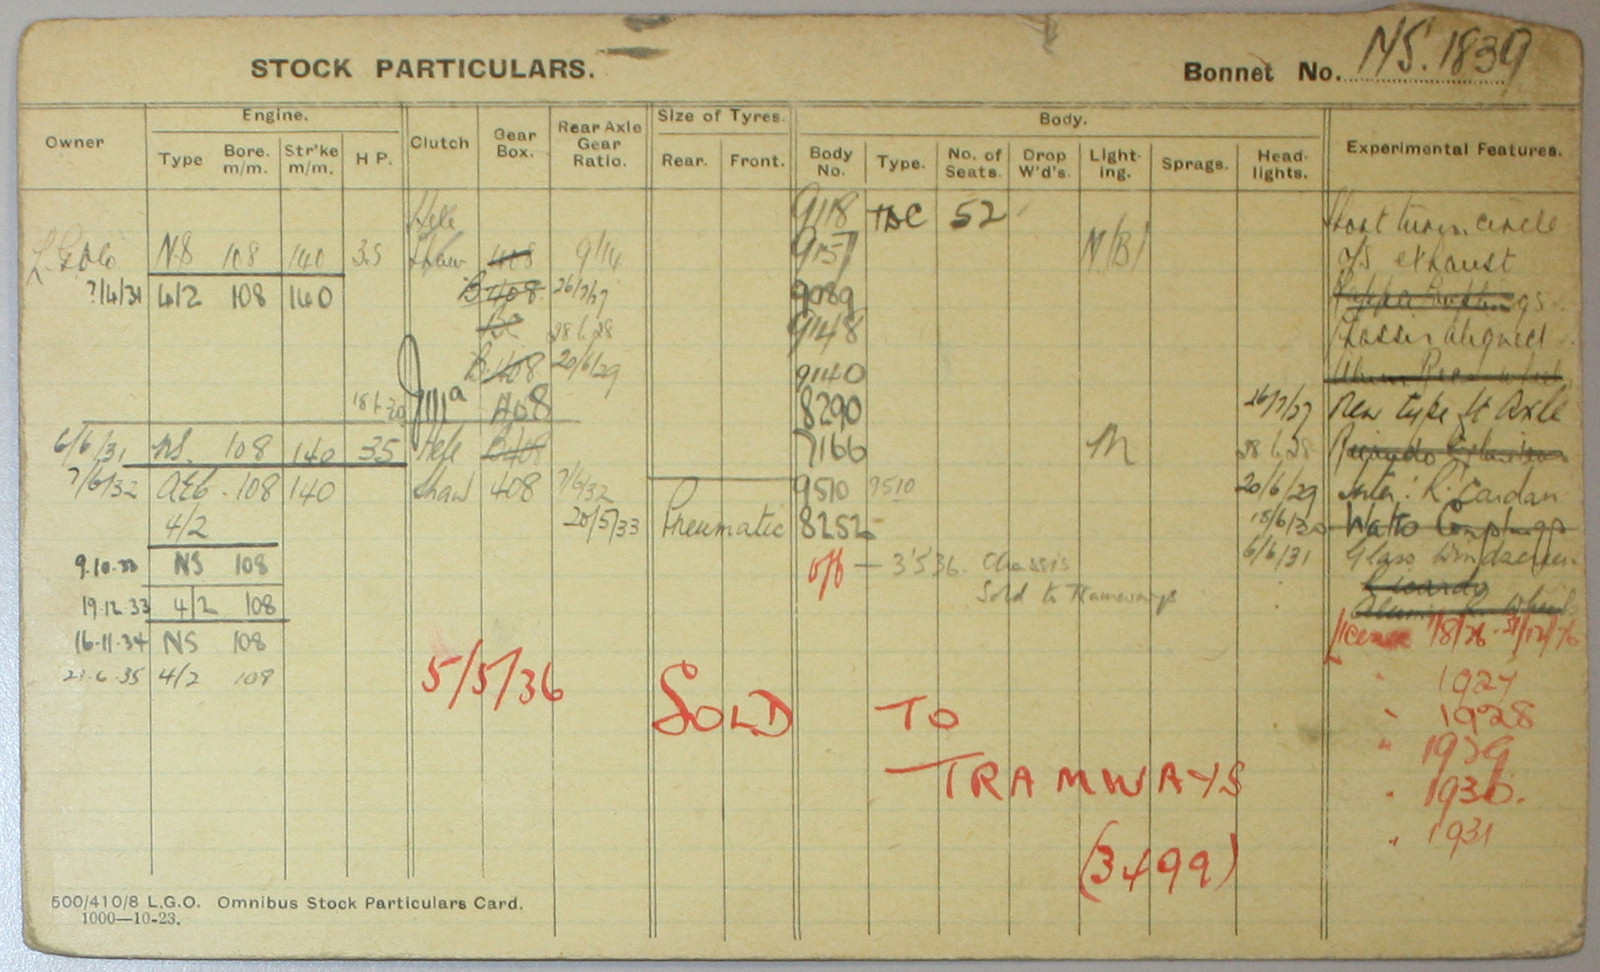 STOCK PARTICULARS.
Bonnet No. NS. 1839
Owner
Engine.
Type
Bore. m/m.
Str'ke m/m.
H P.
Clutch
Gear Box.
Rear Axle Gear Ratio.
Size of Tyres.
Rear.
Front.
Body.
Body No.
Type.
No. of Seats.
Drop W'd's.
Light-ing.
Sprags.
Head-lights.
Experimental Features.
Hele 9118 52 Short turn. circle
NS 108 140 35 Shaw 408 9157 exhaust
7/4/31 4/2 108 140 B 408 26/7/27 9089
9148 Chassis aligned
B 408 20/6/29 9140
408 8290 26/7/27 New type ft Axle
6/6/31 NS. 108 140 35 Hele B408 7166 M
7/6/32 AEC. 108 140 Shaw 408 7/6/32 9510 9510 20/6/29 Cardan
4/2 20/5/33 Pneumatic 8252 18/6/30
9.10.33 NS 108 off — 3'5'36. Chassis 6/6/31 Glass Windscreen
19.12.33 4/2 108 Sold to Tramways Ricardo
16.11.34 NS 108
4/2 108
5/5/36 SOLD TO TRAMWAYS
(3499)
" 1927
" 1928
" 1929
" 1930.
" 1931
500/410/8 L.G.O. Omnibus Stock Particulars Card.
1000—10-23.